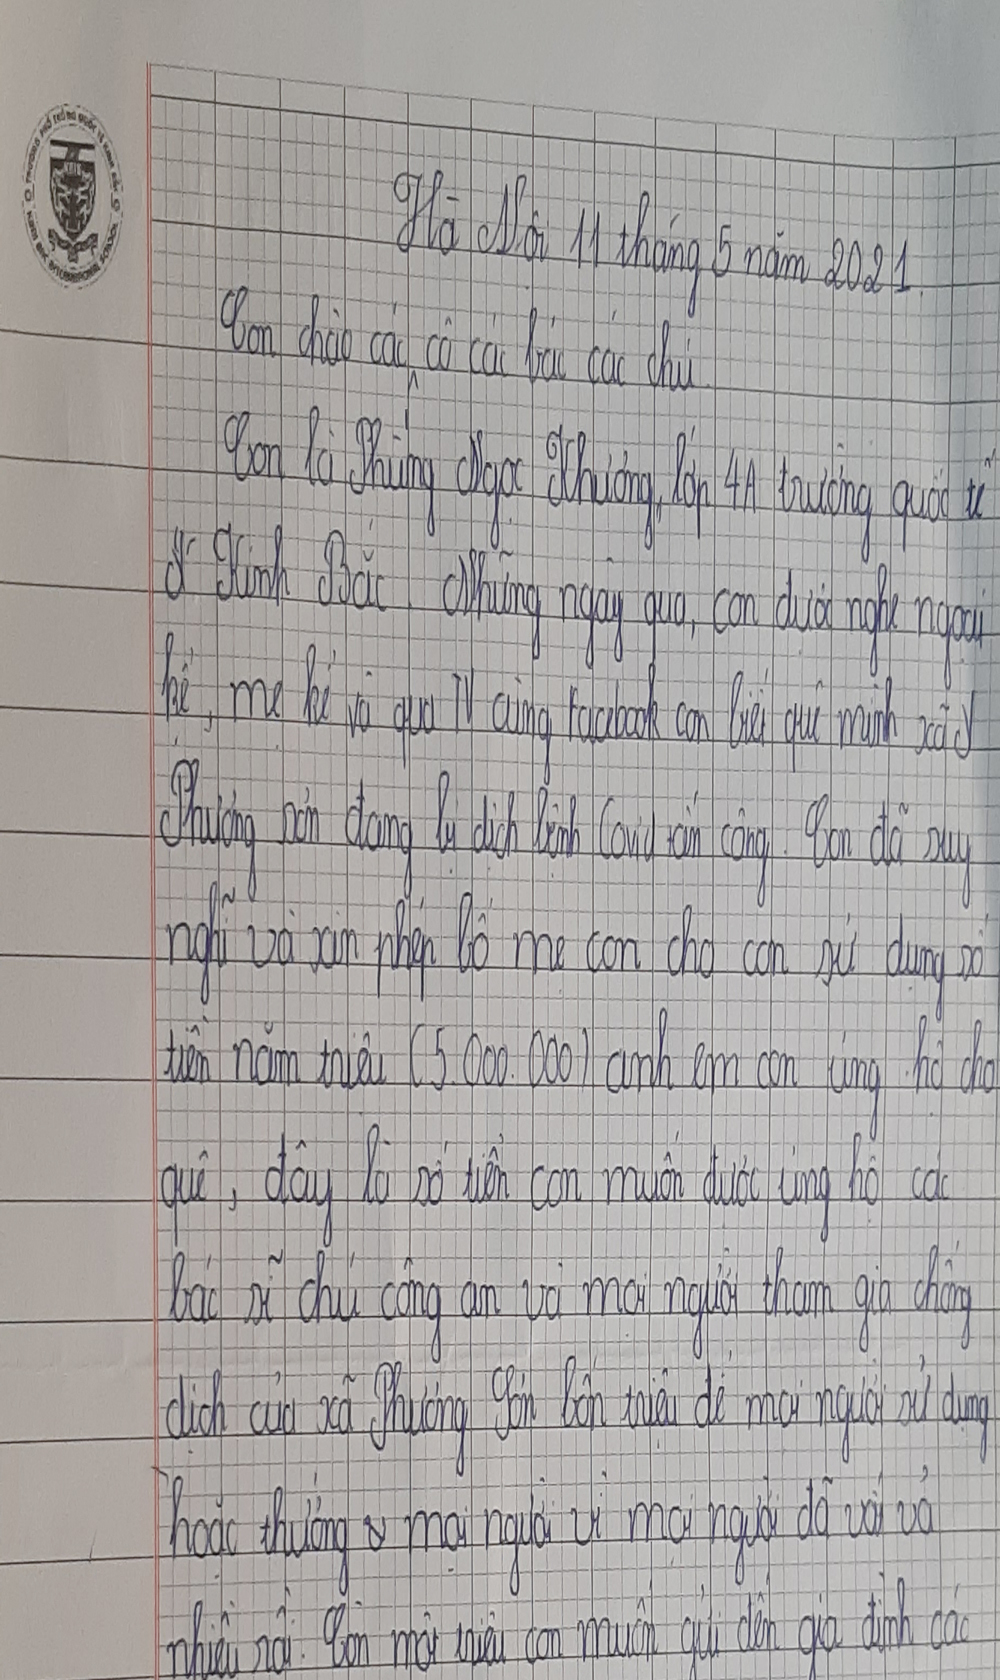 Hà Nội 11 tháng 5 năm 2021.
Con chào các cô các bác các chú.
Con là Phùng Ngọc Khương, lớp 4A trường quốc tế
Kinh Bắc. Những ngày qua, con được nghe ngoại
kể, mẹ kể và qua TV cùng Facebook con biết quê mình xã
Phương Sơn đang bị dịch bệnh Covid tấn công. Con đã suy
nghĩ và xin phép bố mẹ con cho con sử dụng số
tiền năm triệu (5.000.000) anh em con ủng hộ cho
quê, đây là số tiền con muốn được ủng hộ các
bác sĩ chú công an và mọi người tham gia chống
dịch của xã Phương Sơn bốn triệu để mọi người sử dụng
hoặc thưởng mọi người vì mọi người đã vất vả
nhiều rồi. Còn một triệu con muốn gửi đến gia đình các